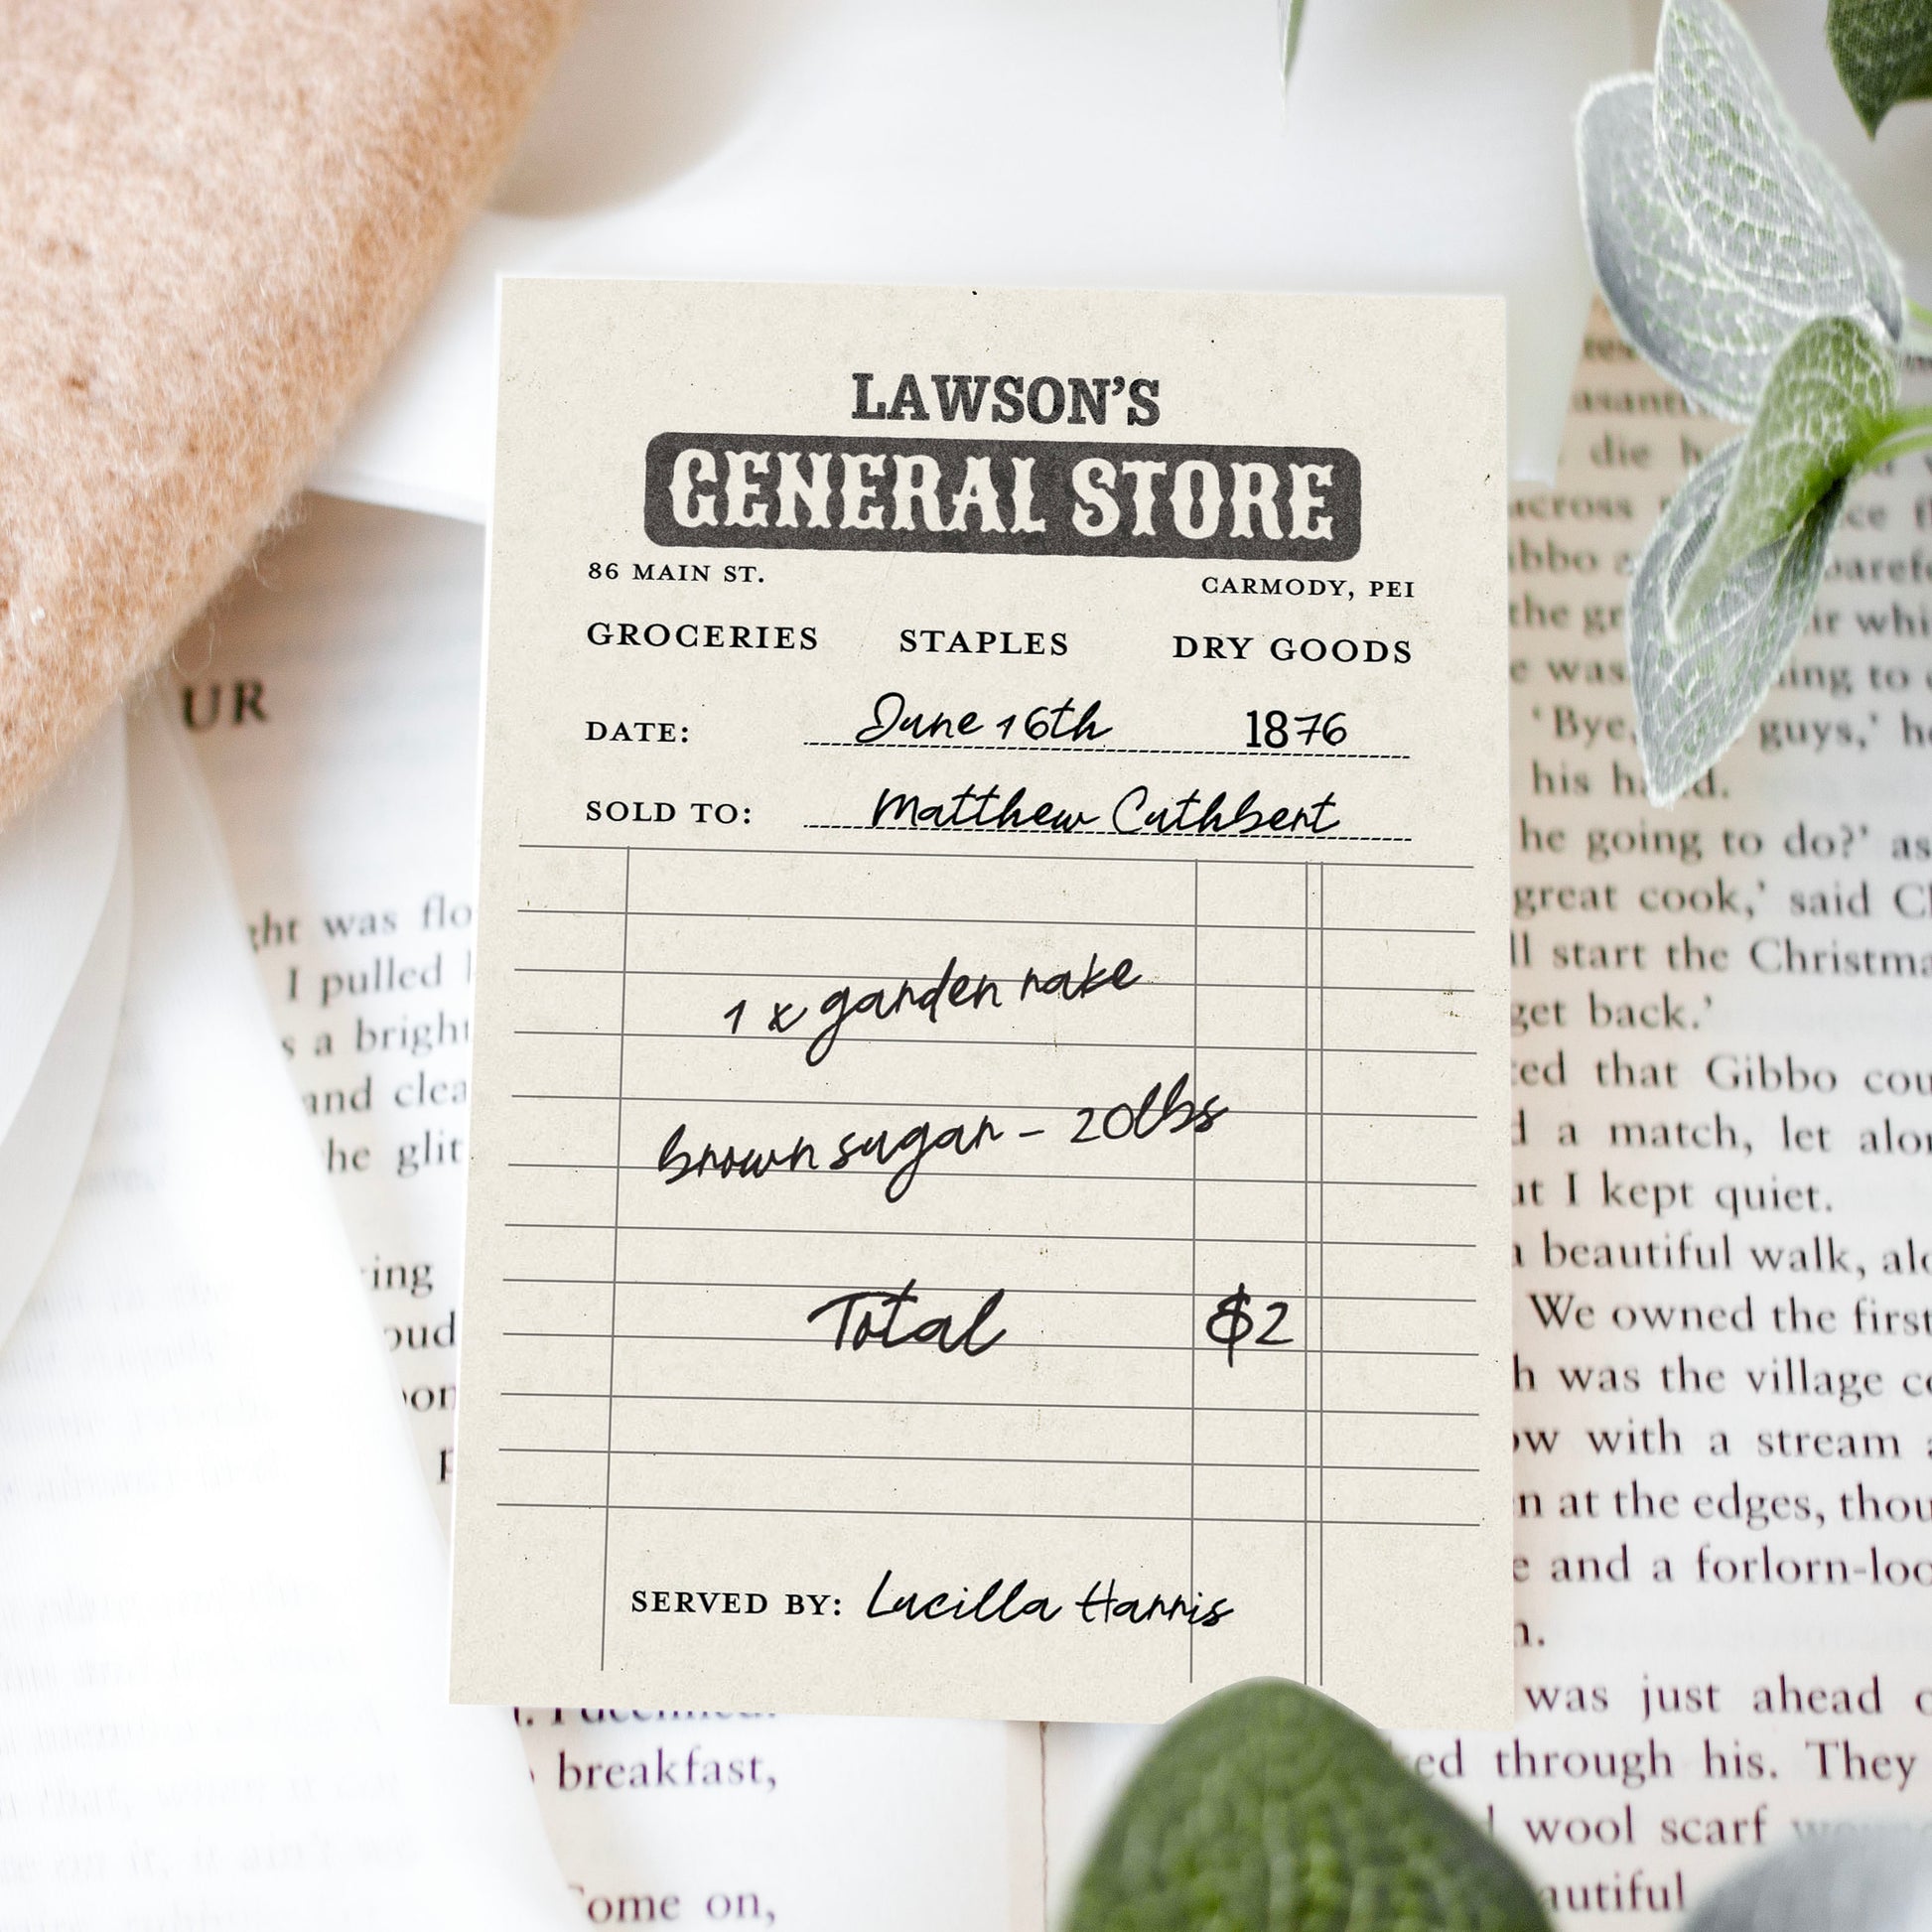 LAWSON'S
GENERAL STORE
86 MAIN ST. CARMODY, PEI
GROCERIES STAPLES DRY GOODS
DATE: June 16th 1876
SOLD TO: Matthew Cuthbert
1 x garden rake
brown sugar – 20lbs
Total $2
SERVED BY: Lucilla Harris
UR
ght was flo
I pulled
s a bright
and clea
he glit
ing
oud
breakfast,
Come on,
die
across
the gr
whi
was
ing to
'Bye, guys,' he
his
he going to do?' as
great cook,' said
ll start the Christma
get back.'
ted that Gibbo cou
a match, let alon
ut I kept quiet.
a beautiful walk, alo
We owned the first
h was the village
ow with a stream
n at the edges, thou
e and a forlorn-loo
was just ahead
ed through his. They
wool scarf
autiful